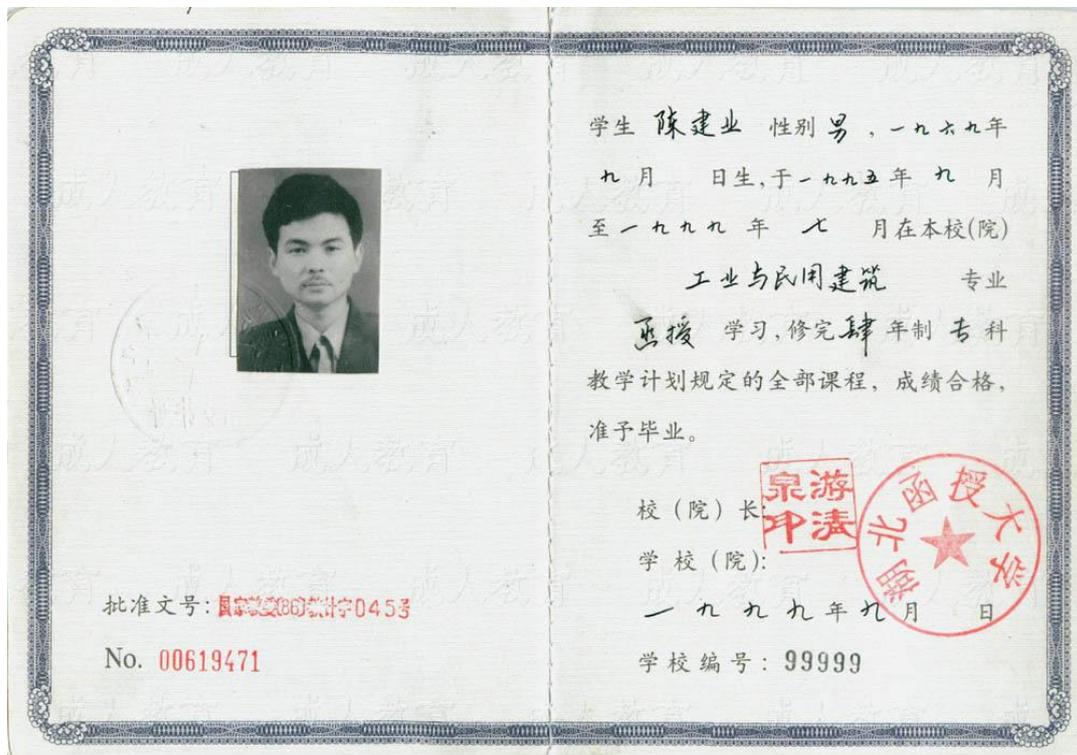 批准文号：国家教委(86)教计字045号
No. 00619471
学生 陈建业 性别 男，一九六九年
九月 日生，于一九九五年九月
至一九九九年 七 月在本校(院)
工业与民用建筑 专业
函授 学习，修完肆年制专科
教学计划规定的全部课程，成绩合格，
准予毕业。
校（院）长：
游清泉印
学校（院）：
湖北函授大学
一九九九年九月 日
学校编号：99999
成人教育